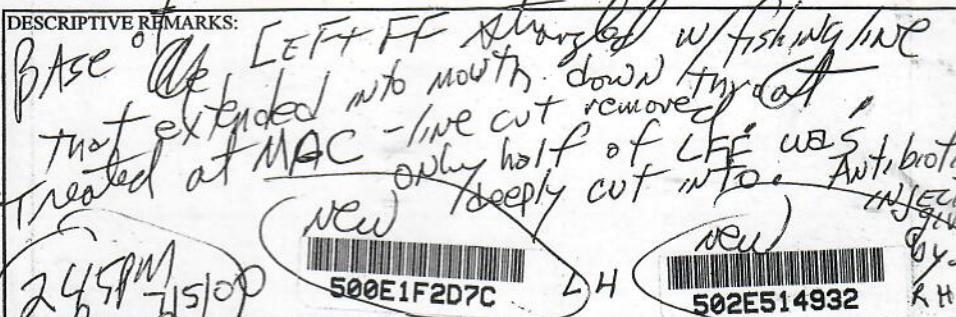 DESCRIPTIVE REMARKS:
BASE of LEFT FF strangled w/ fishing line
that extended into mouth down throat
Treated at MAC - line cut removed
only half of LFF was
deeply cut into. Antibiot
INJEC
by
New
New
245PM
500E1F2D7C
LH
502E514932
RH